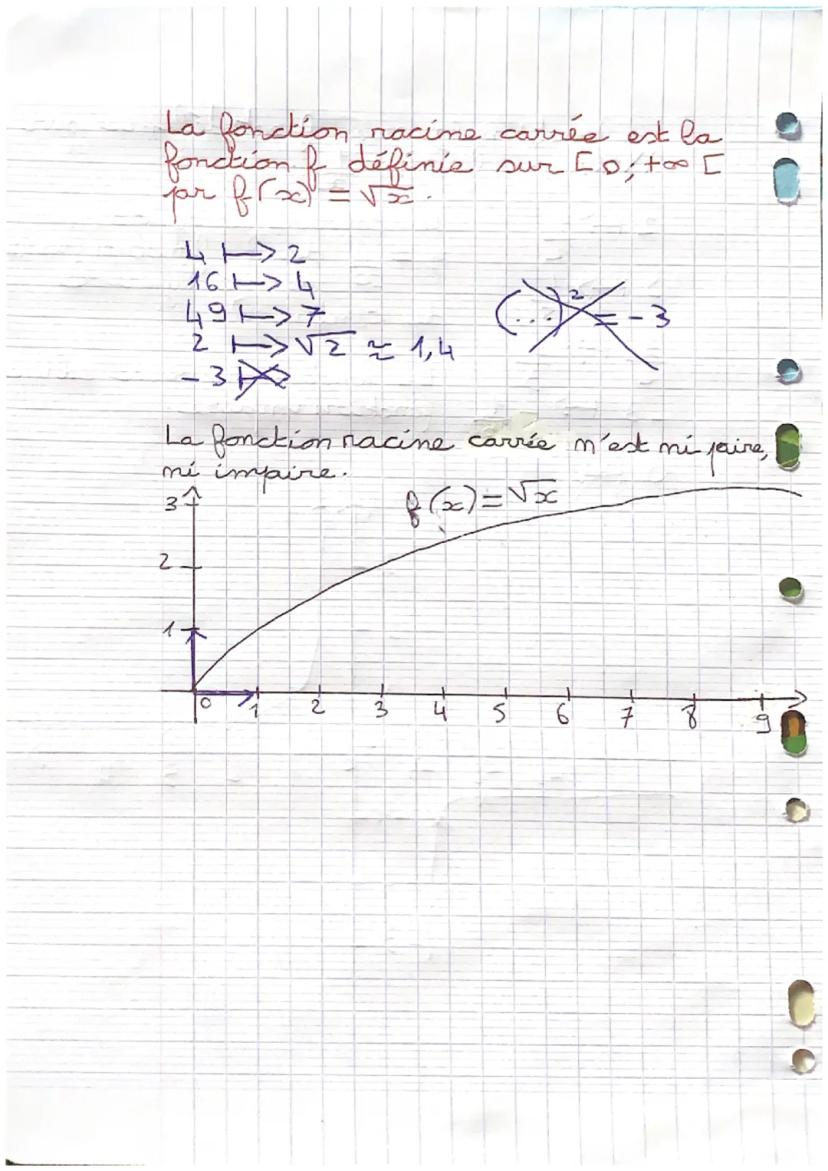 La fonction racine carrée est la
fonction f définie sur [0; +∞ [
par f(x) = √x.
4 ↦ 2
16 ↦ 4
49 ↦ 7
(...)² = -3
2 ↦ √2 ≃ 1,4
-3 ↦
La fonction racine carrée n'est ni paire,
ni impaire.
f(x) = √x
3
2
1
0 1 2 3 4 5 6 7 8 9